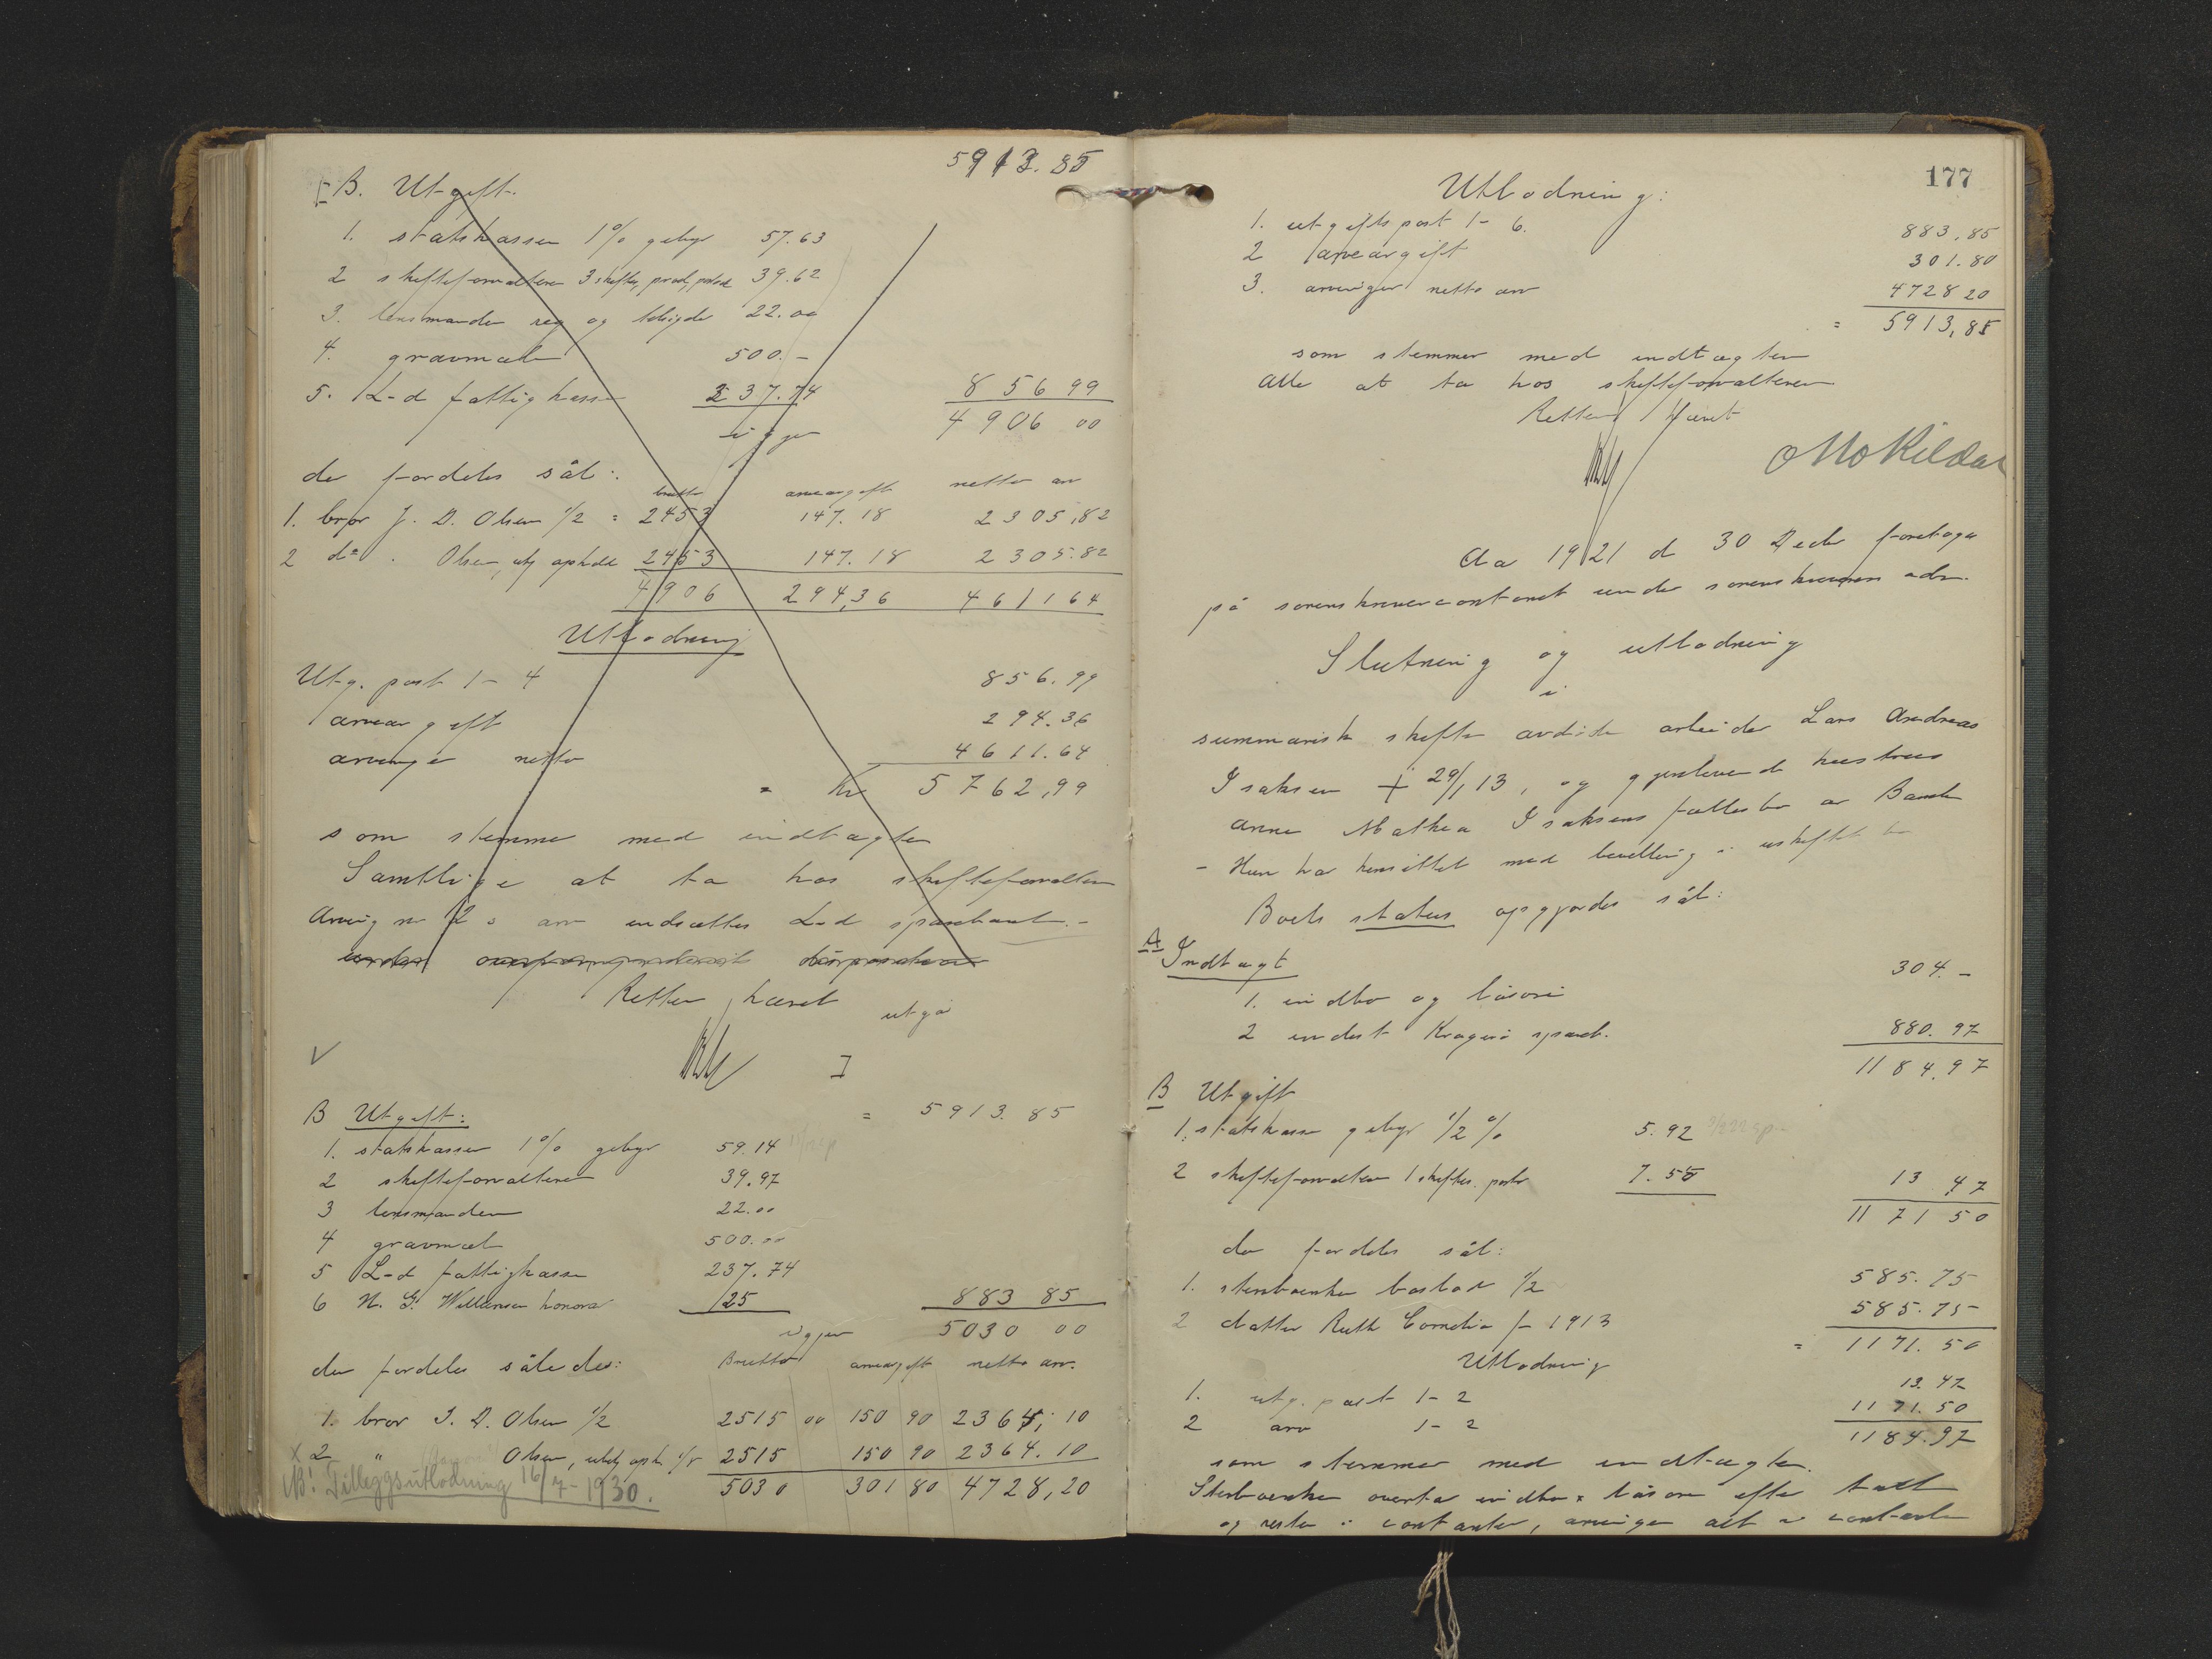 5913.85
[B. Utgift.
1. statskassen 1% gebyr 57.63
2 skifteforvalteren 3 skiftes, prot, porto 39.62
3. lensmanden reg og 22.00
4. gravmæle 500.-
5. L-d fattigkasse 237.74 856 99
igjen 4906 00
der fordeles sål:
brutto arveavgift netto arv
1. bror J. D. Olsen 1/2 = 2453 147.18 2305,82
2 do . Olsen, utj ophold 2453 147.18 2305.82
4906 294,36 4611 64
Utlodning
Utg. post 1-4 856.99
arveavgift 294.36
arvinger netto 4611.64
= Kr 5762,99
som stemmer med indtægten
Samtlige at ta hos skifteforvalteren
Arving nr 2s arv indsættes L-d sparebank.-
Retten hævet
utgår
]
B Utgift: = 5913.85
1. statskassen 1% gebyr 59.14
2 skifteforvalteren 39.97
3 lensmanden 22.00
4 gravmæl 500.00
5 L-d fattigkasse 237.74
6 N. G. Willumsen honorar 25 883 85
igjen 5030 00
der fordeles således: Brutto arveavgift netto arv.
1. bror J. D. Olsen 1/2 2515 00 150 90 2364, 10
x 2 " Olsen, utkj oph. 1/2 2515 150 90 2364.10
NB! Tilleggsutlodning 16/7-1930. 5030 301 80 4728,20
177
Utlodning:
1. utgiftspost 1-6. 883,85
2 arveavgift 301.80
3. arvinger netto arv 4728 20
= 5913,85
som stemmer med indtægten
Alle at ta hos skifteforvalteren
Retten hævet
Otto Kildal
Aa 1921 d 30 Decbr foretoges
på sorenskrivercontoret under sorenskriverens adm.
Slutning og utlodning
i
summarisk skifte avdøde arbeider Lars Andreas
Isaksen + 29/1 13, og gjenlevende hustrues
Anne Mathea Isaksens fællesbo av Bamble
- Hun har hensittet med bevilling i uskiftet bo
Boets status opgjordes sål:
A Indtægt
1. indbo og løsøre 304.-
2 indest Kragerø spareb. 880.97
1184.97
B Utgift
1. statskasse gebyr 1/2 % 5.92
2 skifteforvalteren 1 skiftes. porto 7.55 13 47
1171 50
der fordeles sål:
1. sterboenken boslod 1/2 585.75
2 datter Ruth Cornelia f 1913 585.75
= 1171.50
Utlodning
1. utg. post 1-2 13.47
2 arv 1-2 1171.50
1184.97
som stemmer med indtægten.
Sterboenken overtar indbo & løsøre efter takst
og resten i contanter, arvingen alt i contanter